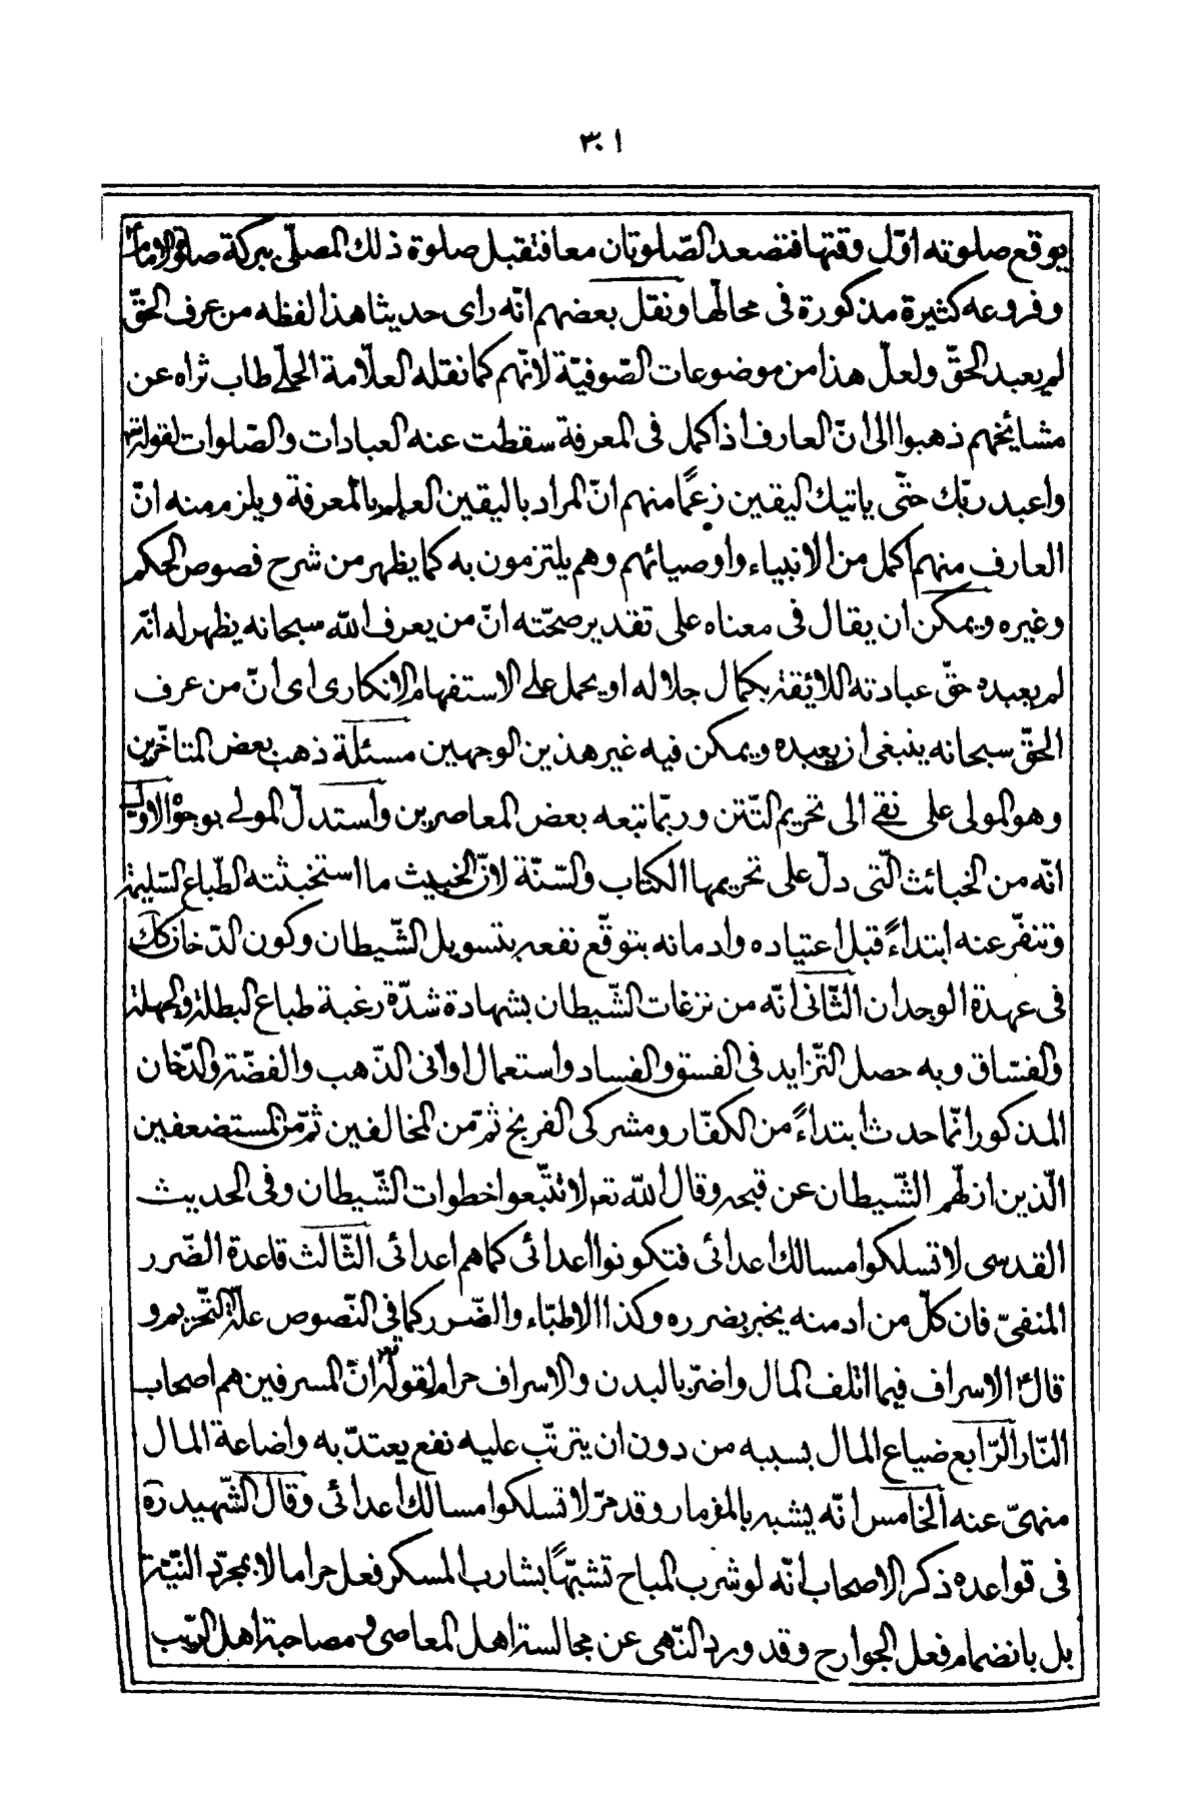 ٣٠١
يوقع صلوته اوّل وقتها فتصعد الصّلوتان معا فتقبل صلوة ذلك المصلّي ببركة صلوة الامام
وفروعه كثيرة مذكورة فى محالّها ونقل بعضهم انّه راى حديثا هذا لفظه من عرف الحقّ
لم يعبد الحقّ ولعلّ هذا من موضوعات الصّوفيّة لانّهم كما نقله العلّامة الحلّي طاب ثراه عن
مشايخهم ذهبوا الى انّ العارف اذا كمل فى المعرفة سقطت عنه العبادات والصّلوات لقوله
واعبد ربّك حتّى ياتيك اليقين زعمًا منهم انّ المراد باليقين العلم بالمعرفة ويلزم منه انّ
العارف منهم اكمل من الانبياء واوصيائهم وهم يلتزمون به كما يظهر من شرح فصوص الحكم
وغيره ويمكن ان يقال فى معناه على تقدير صحّته انّ من يعرف الله سبحانه يظهر له انّه
لم يعبده حقّ عبادته اللائقة بكمال جلاله او يحمل على الاستفهام الانكارى اى انّ من عرف
الحقّ سبحانه ينبغى ان يعبده ويمكن فيه غير هذين الوجهين مسئلة ذهب بعض المتاخّرين
وهو المولى على نقى الى تحريم التّتن وربّما تبعه بعض المعاصرين واستدلّ المولى بوجوه الاوّل
انّه من الخبائث الّتى دلّ على تحريمها الكتاب والسّنّة لانّ الخبيث ما استخبثته الطّباع السّليمة
وتنفّر عنه ابتداءً قبل اعتياده وادمانه بتوقّع نفعه بتسويل الشّيطان وكون الدّخان كك
فى عهدة الوجدان الثّانى انّه من نزغات الشّيطان بشهادة شدّة رغبة طباع البطلة والجهلة
والفسّاق وبه حصل التّزايد فى الفسق والفساد واستعمال اوانى الذّهب والفضّة والدّخان
المذكور انّما حدث ابتداءً من الكفّار ومشركى الفرنج ثمّ من المخالفين ثمّ من المستضعفين
الّذين ازلّهم الشّيطان عن قبحه وقال الله تعم لا تتّبعوا خطوات الشّيطان وفى الحديث
القدسى لا تسلكوا مسالك اعدائى فتكونوا اعدائى كما هم اعدائى الثّالث قاعدة الضّرر
المنفىّ فان كلّ من ادمنه يخبر بضرره وكذا الاطبّاء والضّرر كما فى النّصوص علّة التّحريم و
قال الاسراف فيما اتلف المال واضرّ بالبدن والاسراف حرام لقوله انّ المسرفين هم اصحاب
النّار الرّابع ضياع المال بسببه من دون ان يترتّب عليه نفع يعتدّ به واضاعة المال
منهىّ عنه الخامس انّه يشبه بالمزمار وقد مرّ لا تسلكوا مسالك اعدائى وقال الشّهيد ره
فى قواعده ذكر الاصحاب انّه لو شرب المباح تشبّهًا بشارب المسكر فعل حراما لا بمجرّد النّيّة
بل بانضمام فعل الجوارح وقد ورد النّهى عن مجالسة اهل المعاصى ومصاحبة اهل الرّيب